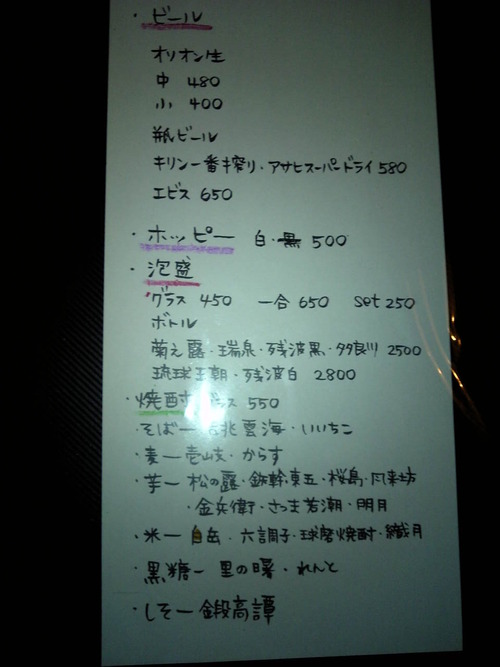 ・ビール
オリオン生
中 480
小 400
瓶ビール
キリン一番搾り・アサヒスーパードライ 580
エビス 650
・ホッピー 白・黒 500
・泡盛
グラス 450 一合 650 set 250
ボトル
菊之露・瑞泉・残波黒・多良川 2500
琉球王朝・残波白 2800
・焼酎 グラス 550
・そばー 雲海・いいちこ
・麦ー壱岐・からす
・芋ー松の露・東五・桜島・風来坊
・金兵衛・さつま若潮・明月
・米ー白岳・六調子・球磨焼酎・繊月
・黒糖ー里の曙・れんと
・しそー鍛高譚